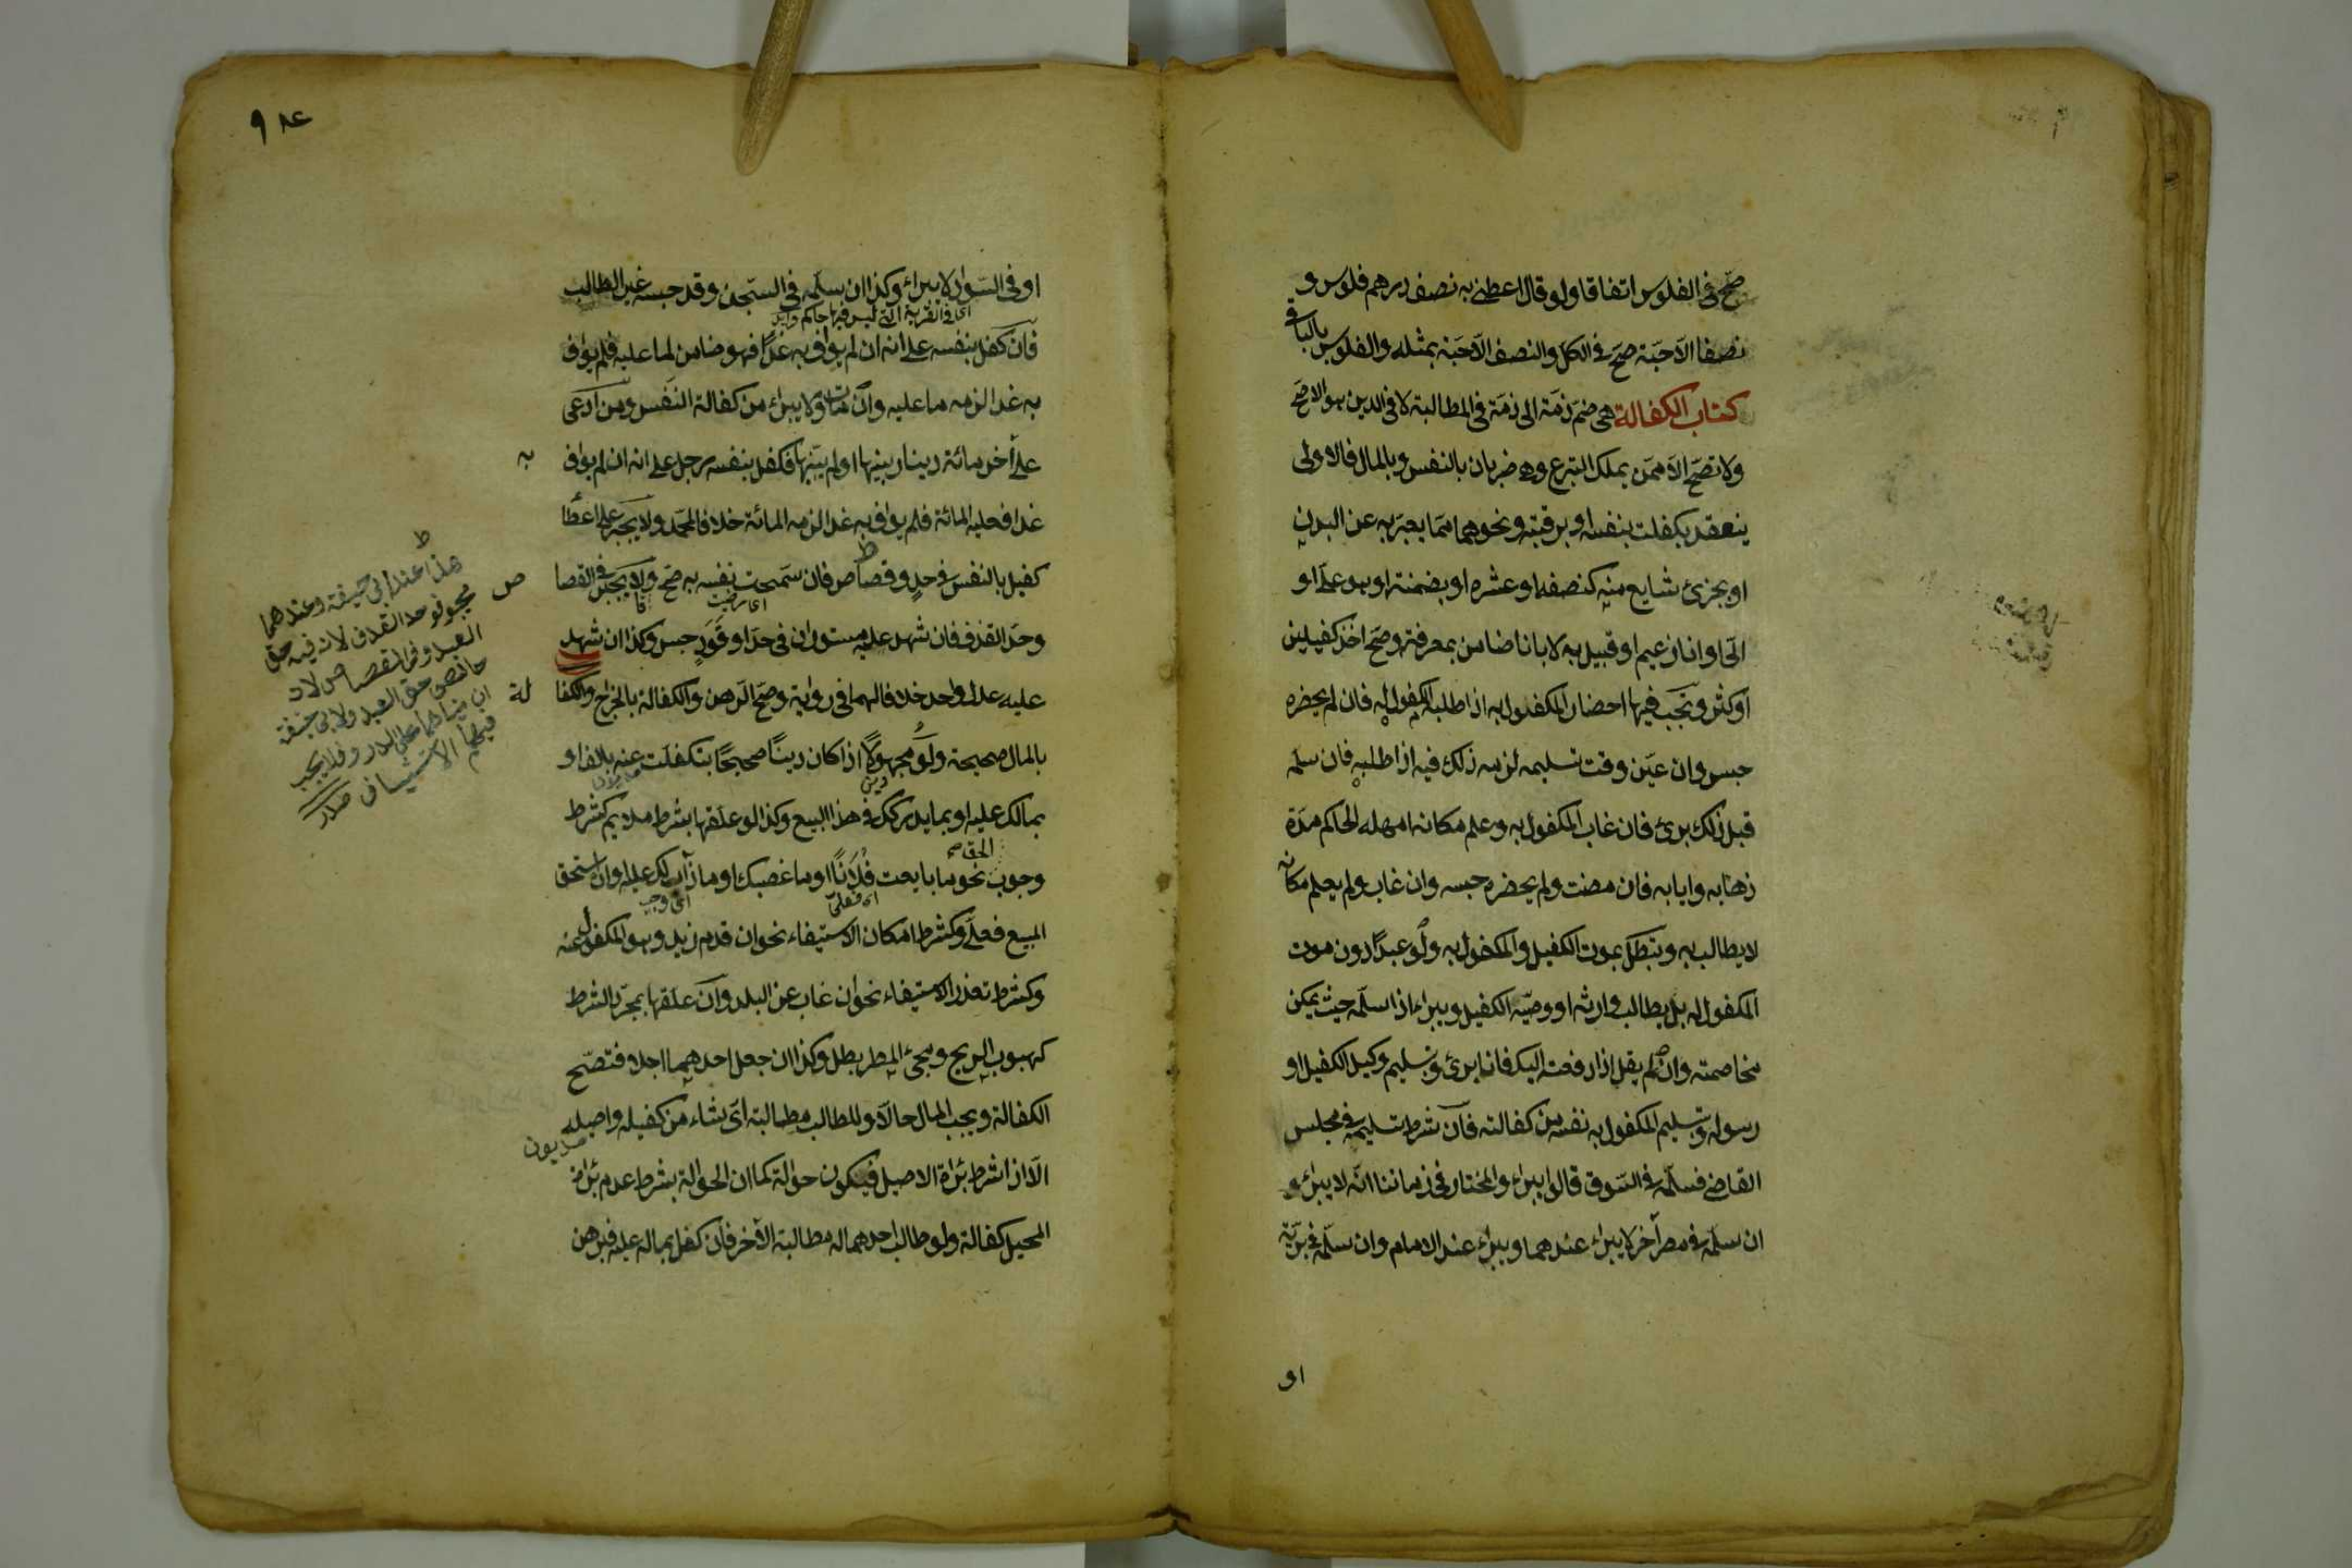 صح في الفلوس اتفاقا ولو قال اعطني به نصف درهم فلوس و
نصفا الا حبة صح في الكل والنصف الا حبة بمثله والفلوس بالباقي
كتاب الكفالة هي ضم ذمة الى ذمة في المطالبة لا في الدين هو الاصح
ولا تصح الا ممن يملك التبرع وهي ضربان بالنفس وبالمال فالاولى
ينعقد بكفلت بنفسه او برقبته ونحوهما مما يعبر به عن البدن
او بجزئ شايع منه كنصفه او عشره او بضمنته او هو علي او
الي او انا زعيم او قبيل به لا بانا ضامن بمعرفته وصح اخذ كفيلين
او كثر ويجب فيها احضار المكفول به اذا طلبه المكفول له فان لم يحضره
حبس وان عين وقت تسليمه لزمه ذلك فيه اذا طلبه فان سلمه
قبل ذلك برئ فان غاب المكفول به وعلم مكانه امهله الحاكم مدة
ذهابه وايابه فان مضت ولم يحضره حبسه وان غاب ولم يعلم مكانه
لا يطالب به وتبطل بموت الكفيل والمكفول به ولو عبدا دون موت
المكفول له بل يطالب وارثه او وصيه الكفيل ويبراء اذا سلمه حيث يمكن
مخاصمته وان لم يقل اذا دفعت اليك فانا برئ وبتسليم وكيل الكفيل او
رسوله وبتسليم المكفول به نفسه من كفالته فان شرط تسليمه في مجلس
القاضي فسلمه في السوق قالوا يبراء والمختار في زماننا انه لا يبراء و
ان سلمه في مصر آخر لا يبراء عندهما ويبراء عند الامام وان سلمه في برية
او
٩
او في السواد لا يبراء وكذا ان سلمه في السجن وقد حبسه غير الطالب
اى في القرية التي ليس فيها حاكم
فان كفل بنفسه على انه ان لم يواف به غدا فهو ضامن لما عليه فلم يواف
به غدا لزمه ما عليه وان مات ولا يبراء من كفالة النفس ومن ادعى
على آخر مائة دينار بينها او لم يبينها فكفل بنفسه رجل على انه ان لم يواف به
غدا فعليه المائة فلم يواف به غدا لزمه المائة خلافا لمحمد ولا يجبر على اعطا
كفيل بالنفس في حد وقصاص فان سمحت نفسه به صح ولا يجبر في القصا ص
اى رضيت
وحد القذف فان شهد عليه مستوران في حد او قود حبس وكذا ان شهد
عليه عدل واحد خلافا لهما في رواية وصح الرهن والكفالة بالخراج والكفا لة
بالمال صحيحة ولو مجهولا اذا كان دينا صحيحا بتكفلت عنه بالف او
بمالك عليه او بما يدركك في هذا البيع وكذا لو علقها بشرط ملايم كشرط
وجوب الحق نحو ما بايعت فلانا او ما غصبك او ما ذاب لك عليه وان استحق
اى فعلي
اى وجب
المبيع فعلي وكشرط امكان الاستيفاء نحو ان قدم زيد وهو المكفول عنه
وكشرط تعذر الاستيفاء نحو ان غاب عن البلد وان علقها بمجرد الشرط
كهبوب الريح ومجئ المطر بطل وكذا ان جعل احدهما اجلا فتصح
الكفالة ويجب المال حالا وللطالب مطالبة اي شاء من كفيله واصيله
مديون
الا اذا شرط براءة الاصيل فيكون حوالة كما ان الحوالة بشرط عدم براءة
المحيل كفالة ولو طالب احدهما له مطالبة الآخر فان كفل بماله عليه فبرهن
هذا عند ابي حنيفة وعندهما
يجبر في حد القذف لان فيه حق
العبد وفي القصاص لانه
خالص حق العبد ولابي حنيفة
ان مبناهما على الدرء فلا يجب
فيهما الاستيثاق